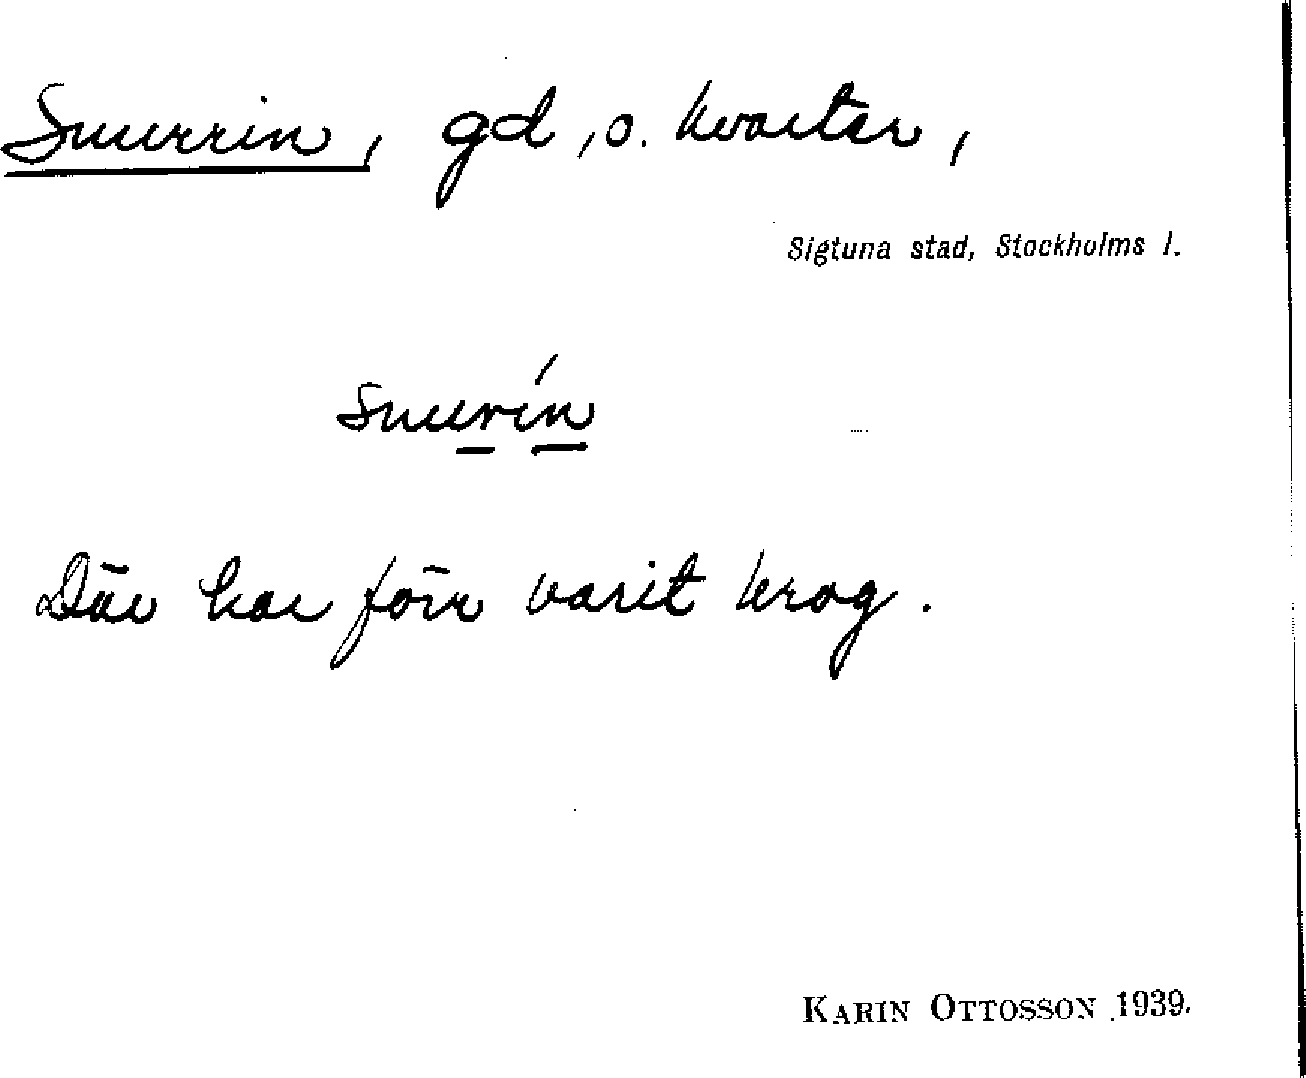 Snurrin, gd, o. kvarter,
Sigtuna stad, Stockholms l.
snurín
Där har förr varit krog.
KARIN OTTOSSON 1939.